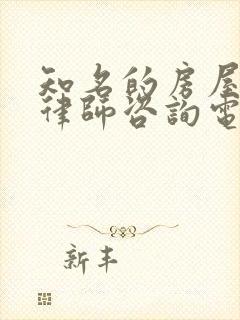 知名的房屋
律師咨詢電
新丰